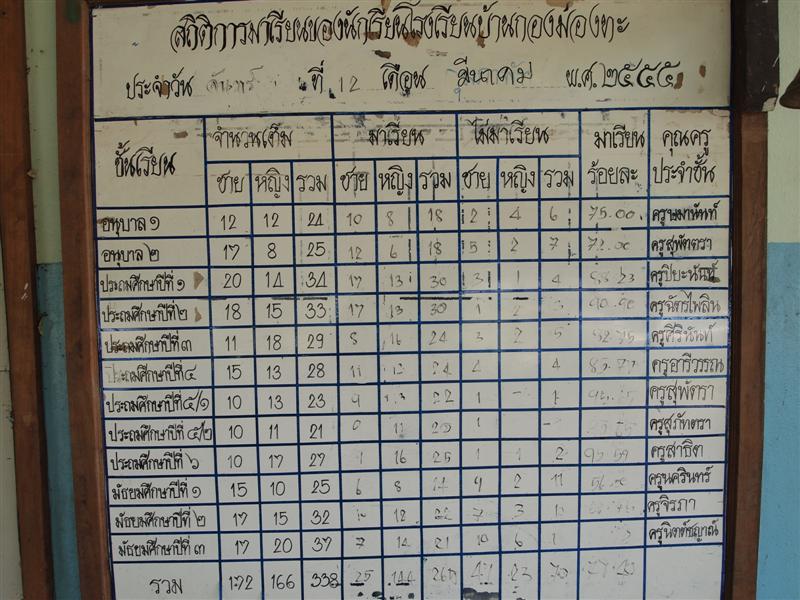 สถิติการมาเรียนของนักเรียนโรงเรียนบ้านกองม่องทะ
ประจำวัน จันทร์ ที่ 12 เดือน มีนาคม พ.ศ. ๒๕๕๕
ชั้นเรียน จำนวนเต็ม มาเรียน ไม่มาเรียน มาเรียนร้อยละ คุณครูประจำชั้น
ชาย หญิง รวม ชาย หญิง รวม ชาย หญิง รวม
อนุบาล ๑ 12 12 24 10 8 18 2 4 6 75.00
อนุบาล ๒ 17 8 25 12 6 18 5 2 7 72.00 ครูสุพัตตรา
ประถมศึกษาปีที่ ๑ 20 14 34 17 13 30 3 1 4 88.23 ครูปิยะนันท์
ประถมศึกษาปีที่ ๒ 18 15 33 17 13 30 1 2 3 90.90 ครูฉัตรไพลิน
ประถมศึกษาปีที่ ๓ 11 18 29 8 16 24 3 2 5 ครูศิรินันท์
ประถมศึกษาปีที่ ๔ 15 13 28 11 13 24 4 4 ครูอารีวรรณ
ประถมศึกษาปีที่ ๕/๑ 10 13 23 9 13 22 1 - 1 ครูสุพัตรา
ประถมศึกษาปีที่ ๕/๒ 10 11 21 11 20 1 - ครูสุภัทตรา
ประถมศึกษาปีที่ ๖ 10 17 27 16 25 1 1 2 92.59 ครูสาธิตา
มัธยมศึกษาปีที่ ๑ 15 10 25 6 8 14 9 2 11 56.00 ครูนครินทร์
มัธยมศึกษาปีที่ ๒ 17 15 32 12 22 7 3 10 ครูจิรภา
มัธยมศึกษาปีที่ ๓ 17 20 37 7 14 21 10 6
รวม 172 166 338 144 23 70